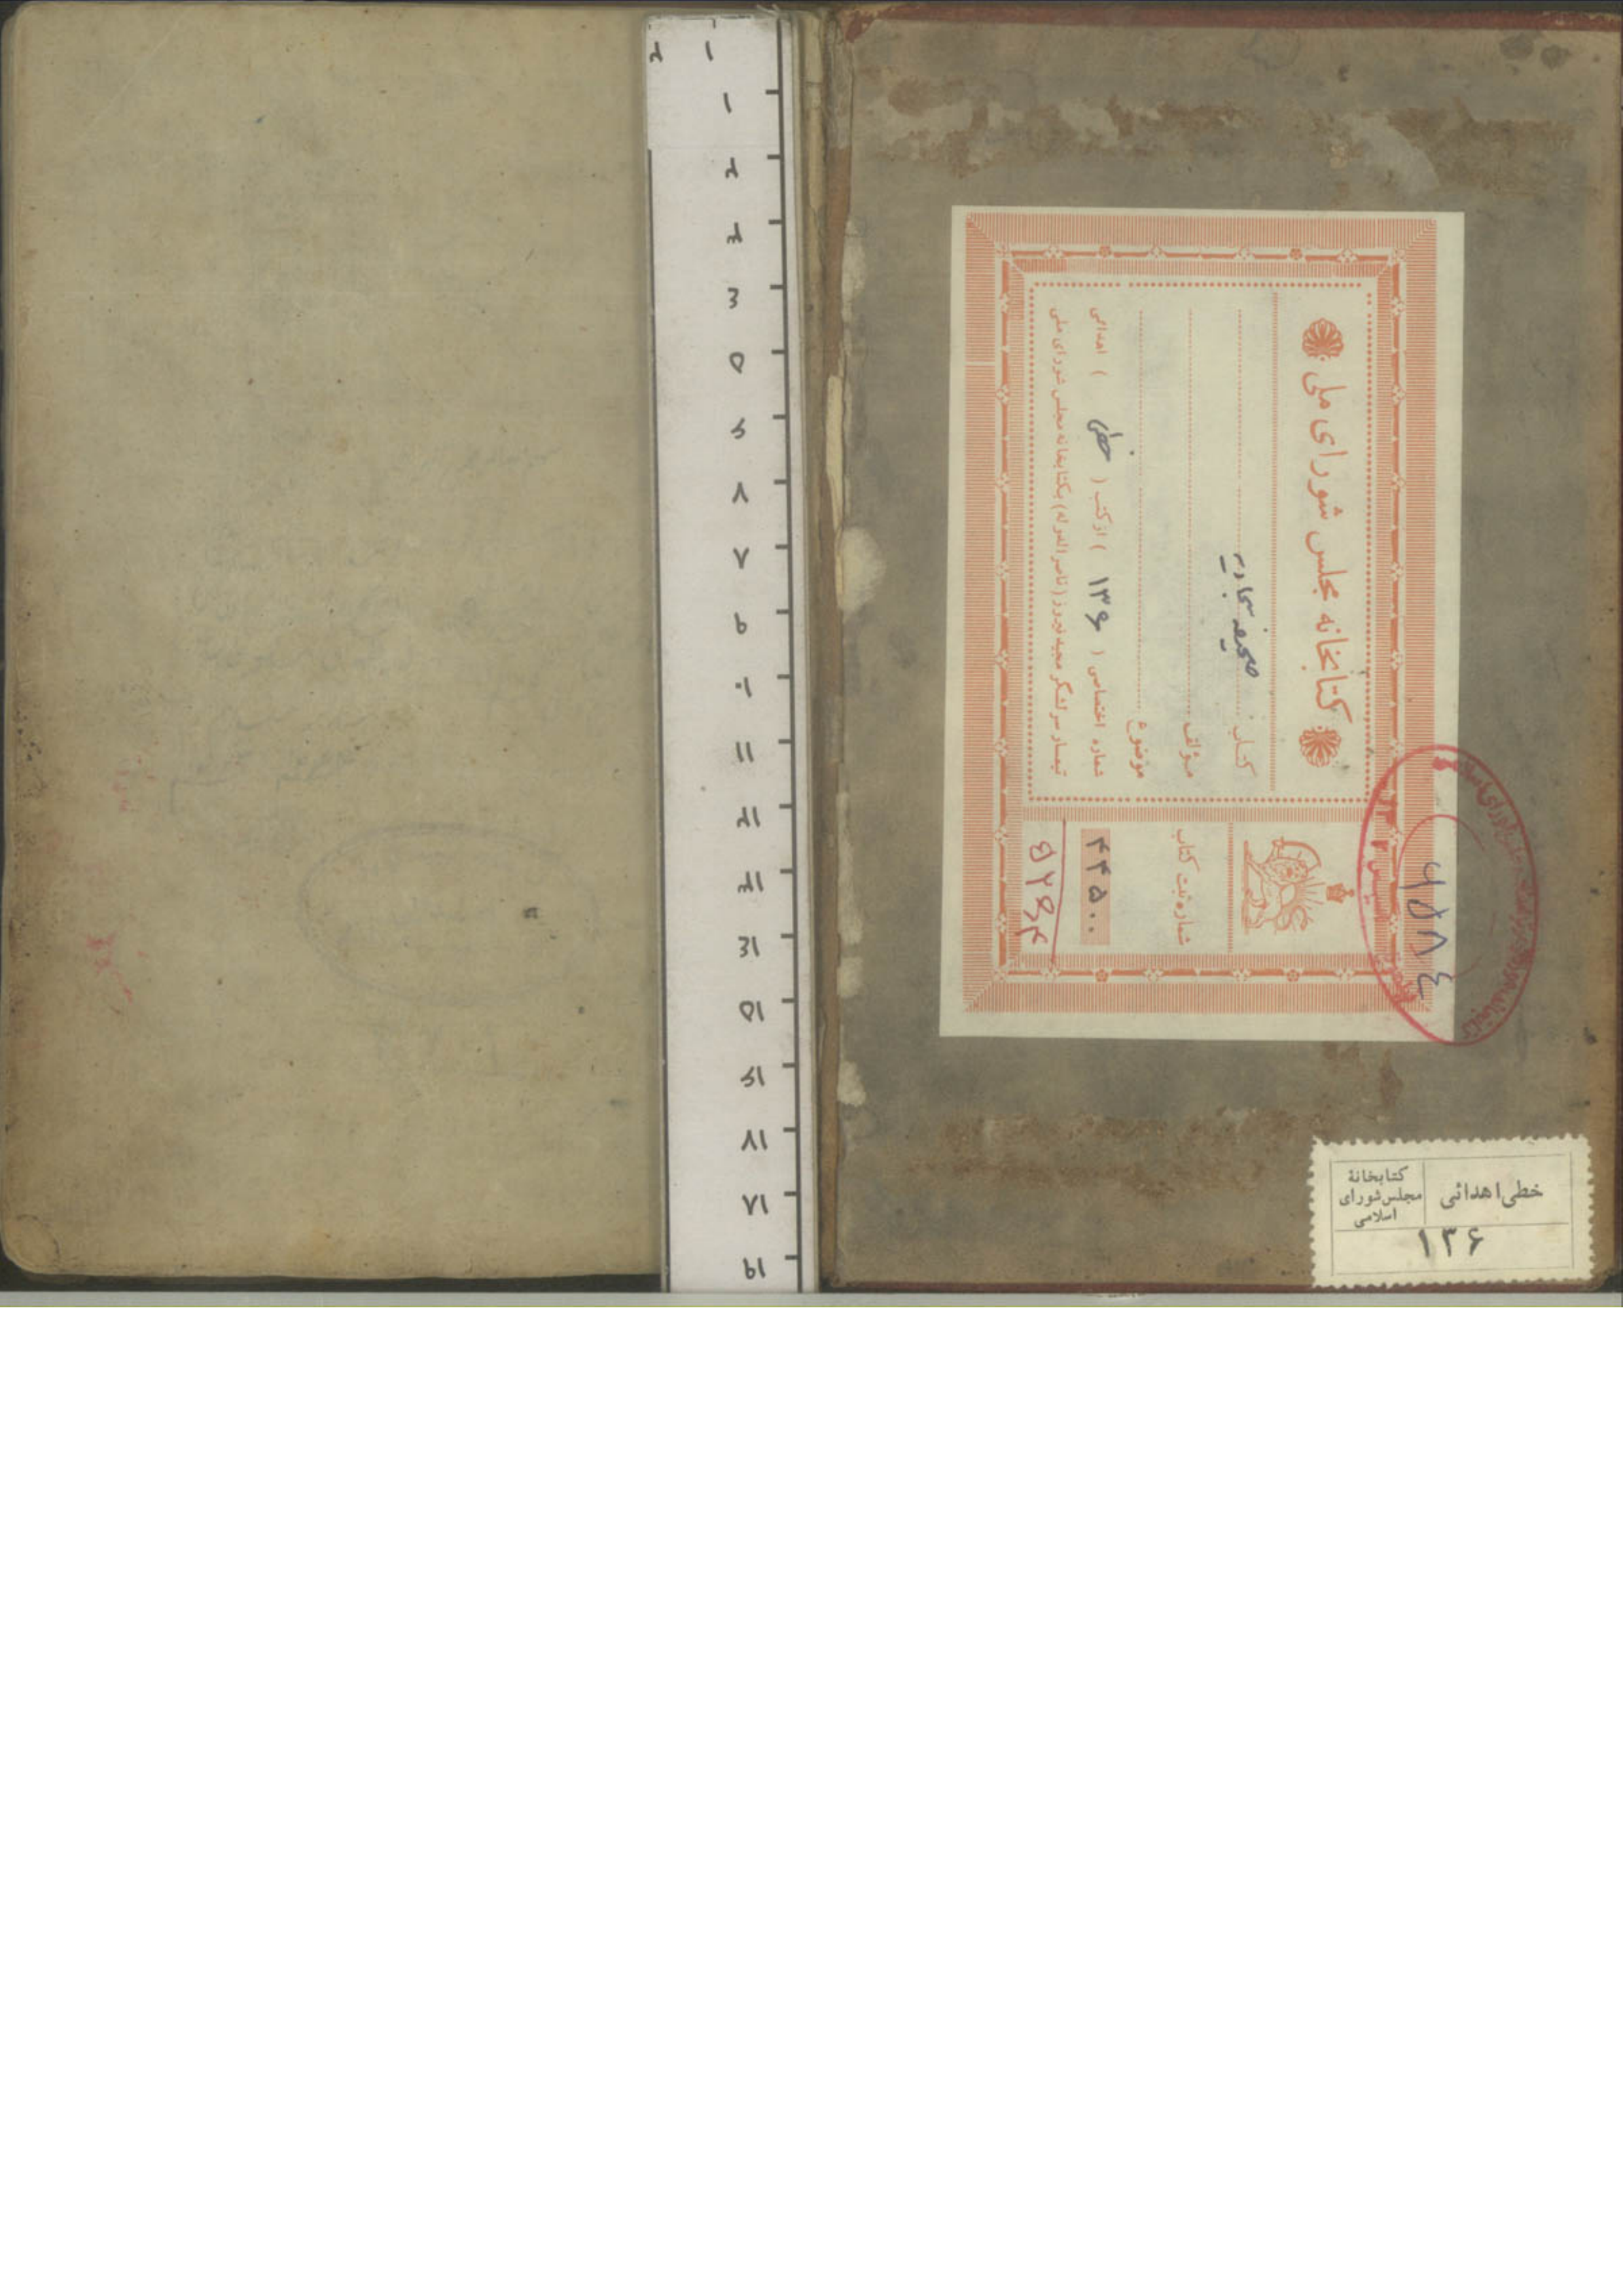 کتابخانه مجلس شورای ملی
کتاب صحیفه سجادیه
مؤلف
موضوع
شماره اختصاصی ( ۱۳۶ ) از کتب ( خطی ) اهدائی
تیمسار سرلشکر مجید فیروز (ناصرالدوله) بکتابخانه مجلس شورای ملی
شماره ثبت کتاب
۴۴۵۰۰
۶۵۸۴
خطی اهدائی
کتابخانهٔ
مجلس شورای
اسلامی
۱۳۶
۱
۲
۱
۲
۳
٤
۵
۶
۷
۸
۹
۱۰
۱۱
۱۲
۱۳
۱٤
۱۵
۱۶
۱۷
۱۸
۱۹